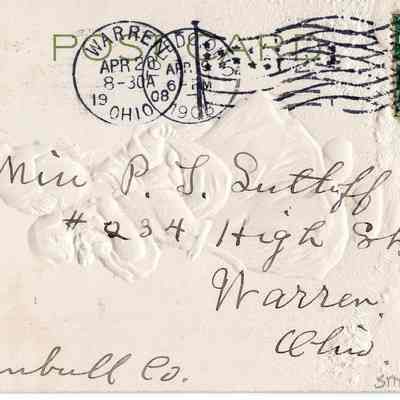 POST CARD
WARREN
APR 20
8-30A
1908
OHIO
APR
6-PM
1908
Miss P. L. Sutliff
#234 High St
Warren
Ohio.
mbull Co.